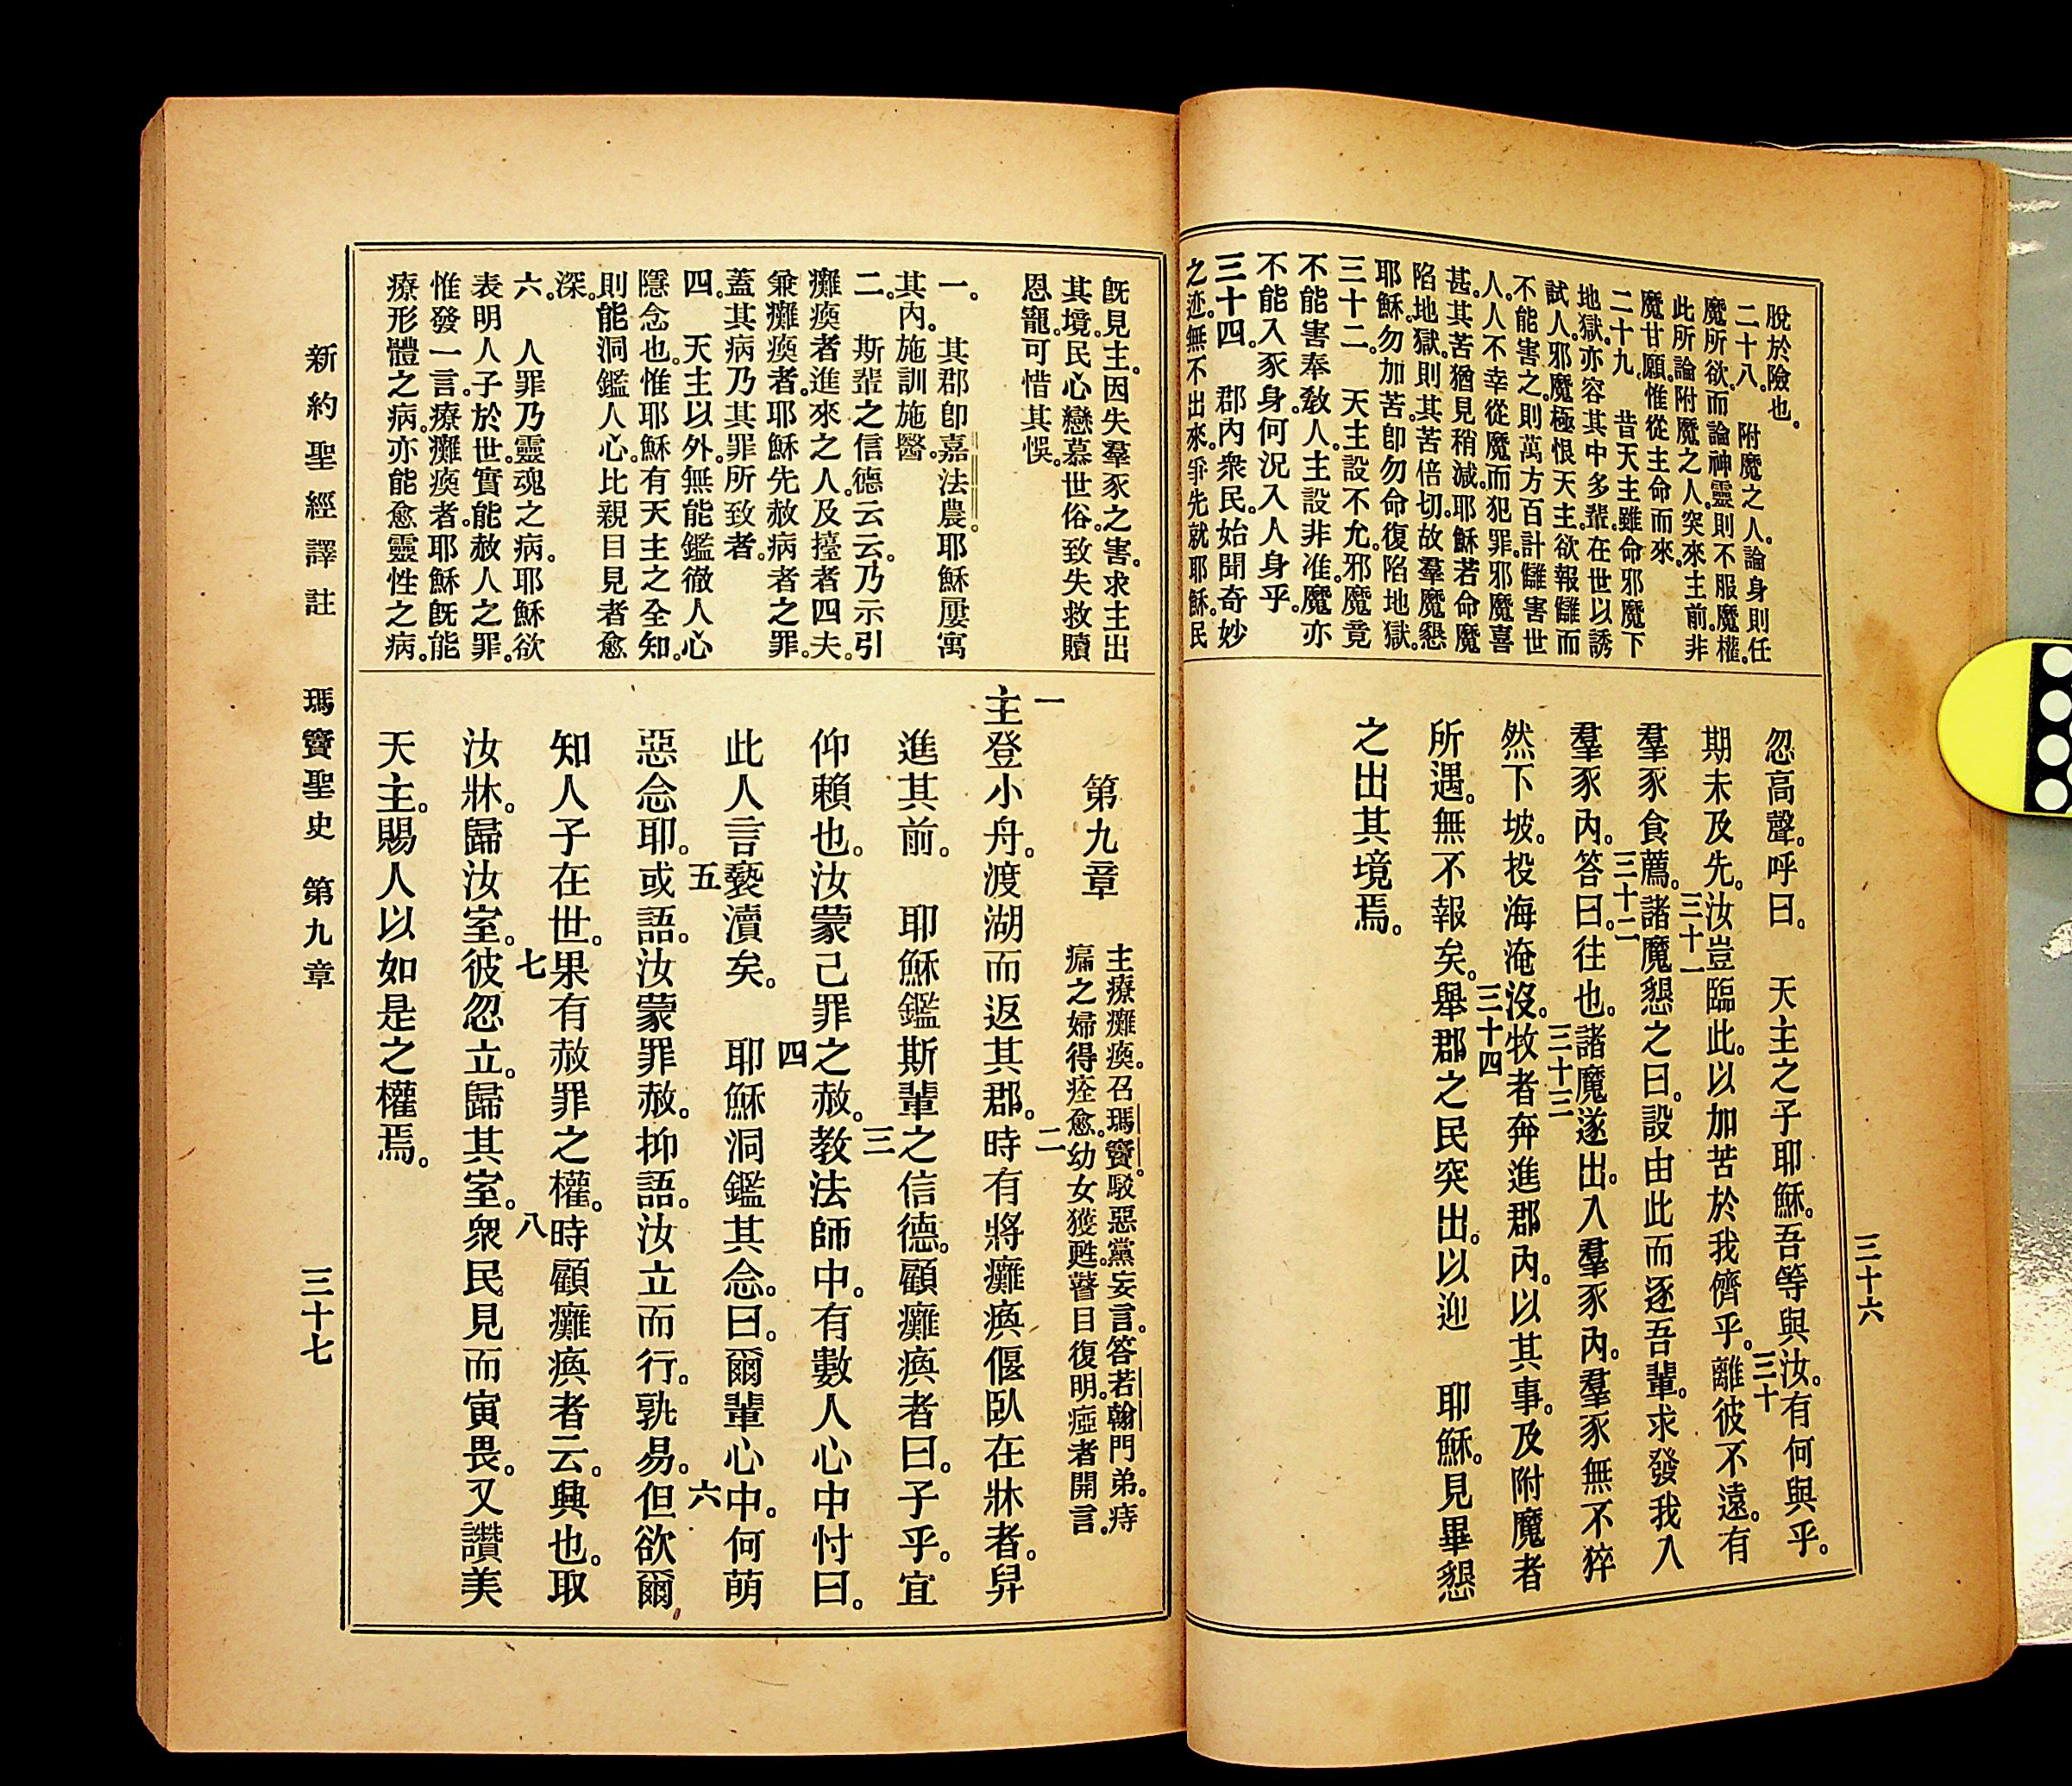 脫於險也。
二十八。附魔之人。論身則任
魔所欲。而論神靈。則不服魔權。
此所論附魔之人。突來主前。非
魔甘願。惟從主命而來。
二十九。昔天主雖命邪魔下
地獄。亦容其中多輩。在世以誘
試人。邪魔極恨天主。欲報讎而
不能害之。則萬方百計讎害世
人。人不幸從魔而犯罪。邪魔喜
甚。其苦猶見稍減。耶穌若命魔
陷地獄。則其苦倍切。故羣魔懇
耶穌。勿加苦。卽勿命復陷地獄。
三十二。天主設不允。邪魔竟
不能害奉敎人。主設非准。魔亦
不能入豕身。何況入人身乎。
三十四。郡內衆民。始聞奇妙
之迹。無不出來。爭先就耶穌。民
忽高聲。呼曰。天主之子耶穌。吾等與汝。有何與乎。
三十
期未及先。汝豈臨此。以加苦於我儕乎。離彼不遠。有
三十一
羣豕食薦。諸魔懇之曰。設由此而逐吾輩。求發我入
三十二
羣豕內。答曰。往也。諸魔遂出。入羣豕內。羣豕無不猝
三十三
然下坡。投海淹沒。牧者奔進郡內。以其事。及附魔者
三十四
所遇。無不報矣。舉郡之民突出。以迎 耶穌。見畢懇
之出其境焉。
三十六
旣見主。因失羣豕之害。求主出
其境。民心戀慕世俗。致失救贖
恩寵。可惜其悞。
一。其郡卽嘉法農。耶穌屢寓
其內。施訓施醫。
二。斯輩之信德云云。乃示引
癱瘓者進來之人。及擡者四夫。
兼癱瘓者。耶穌先赦病者之罪。
蓋其病乃其罪所致者。
四。天主以外。無能鑑徹人心
隱念也。惟耶穌有天主之全知。
則能洞鑑人心。比親目見者愈
深。
六。人罪乃靈魂之病。耶穌欲
表明人子於世。實能赦人之罪。
惟發一言。療癱瘓者。耶穌旣能
療形體之病。亦能愈靈性之病。
第九章
主療癱瘓。召瑪竇。駁惡黨妄言。答若翰門弟。痔
痛之婦得痊愈。幼女獲甦。瞽目復明。瘂者開言。
一
主登小舟。渡湖而返其郡。時有將癱瘓偃臥在牀者。舁
二
進其前。耶穌鑑斯輩之信德。顧癱瘓者曰。子乎。宜
三
仰賴也。汝蒙己罪之赦。教法師中。有數人心中忖曰。
四
此人言褻瀆矣。耶穌洞鑑其念。曰。爾輩心中。何萌
五
惡念耶。或語。汝蒙罪赦。抑語。汝立而行。孰易。但欲爾
六
知人子在世。果有赦罪之權。時顧癱瘓者云。興也。取
七
汝牀。歸汝室。彼忽立。歸其室。衆民見而寅畏。又讚美
八
天主。賜人以如是之權焉。
新約聖經譯註 瑪竇聖史 第九章 三十七